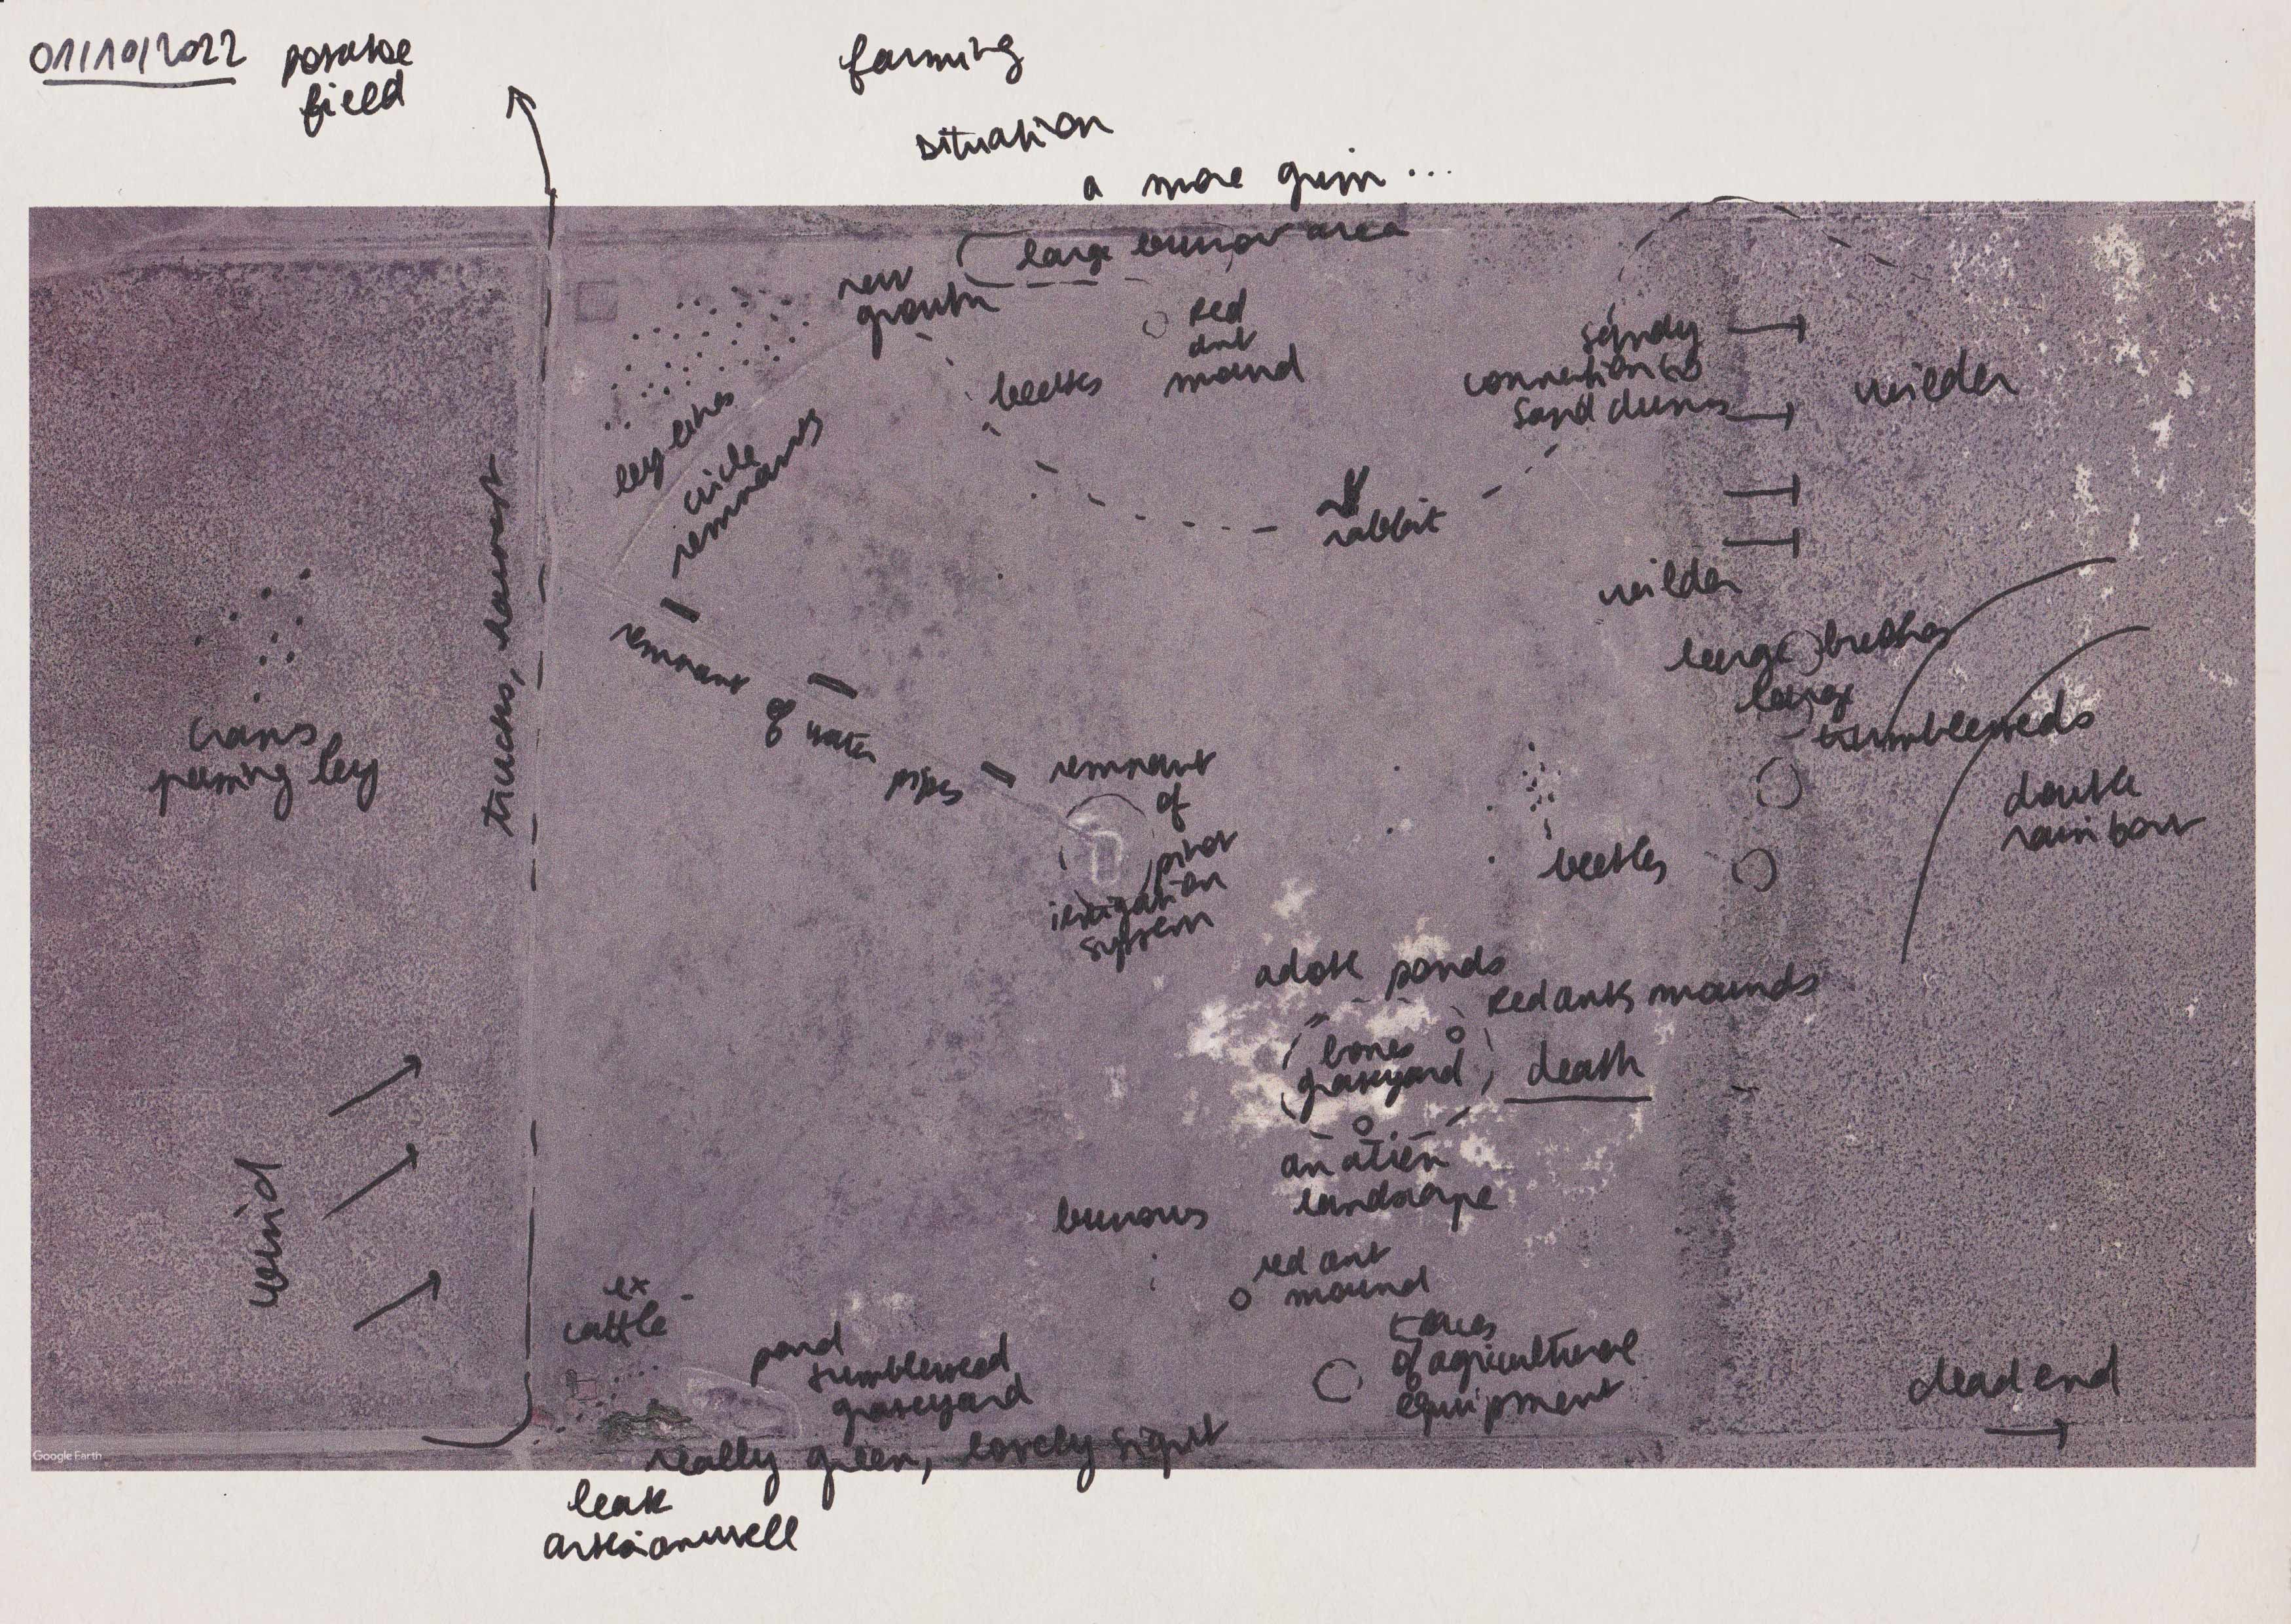 01/10/2022
potatoe
field
farming
situation
a more grim...
large burrow area
new
growth
red
ant
mound
beetles
sandy
connection to
sand dunes
wilder
ley lines
circle
remnants
trucks, harvest
rabbit
wilder
remnant
of water
pipes
large bushes
large
tumbleweeds
double
rainbow
passing by
remnant
of
pivot
irrigation
system
beetles
adobe ponds
Red ants mounds
bones
graveyard
death
an alien
landscape
wind
burrows
red ant
mound
ex
cattle
pond
tumbleweed
graveyard
traces
of agricultural
equipment
dead end
Google Earth
really green, lovely sight
leak
artesian well